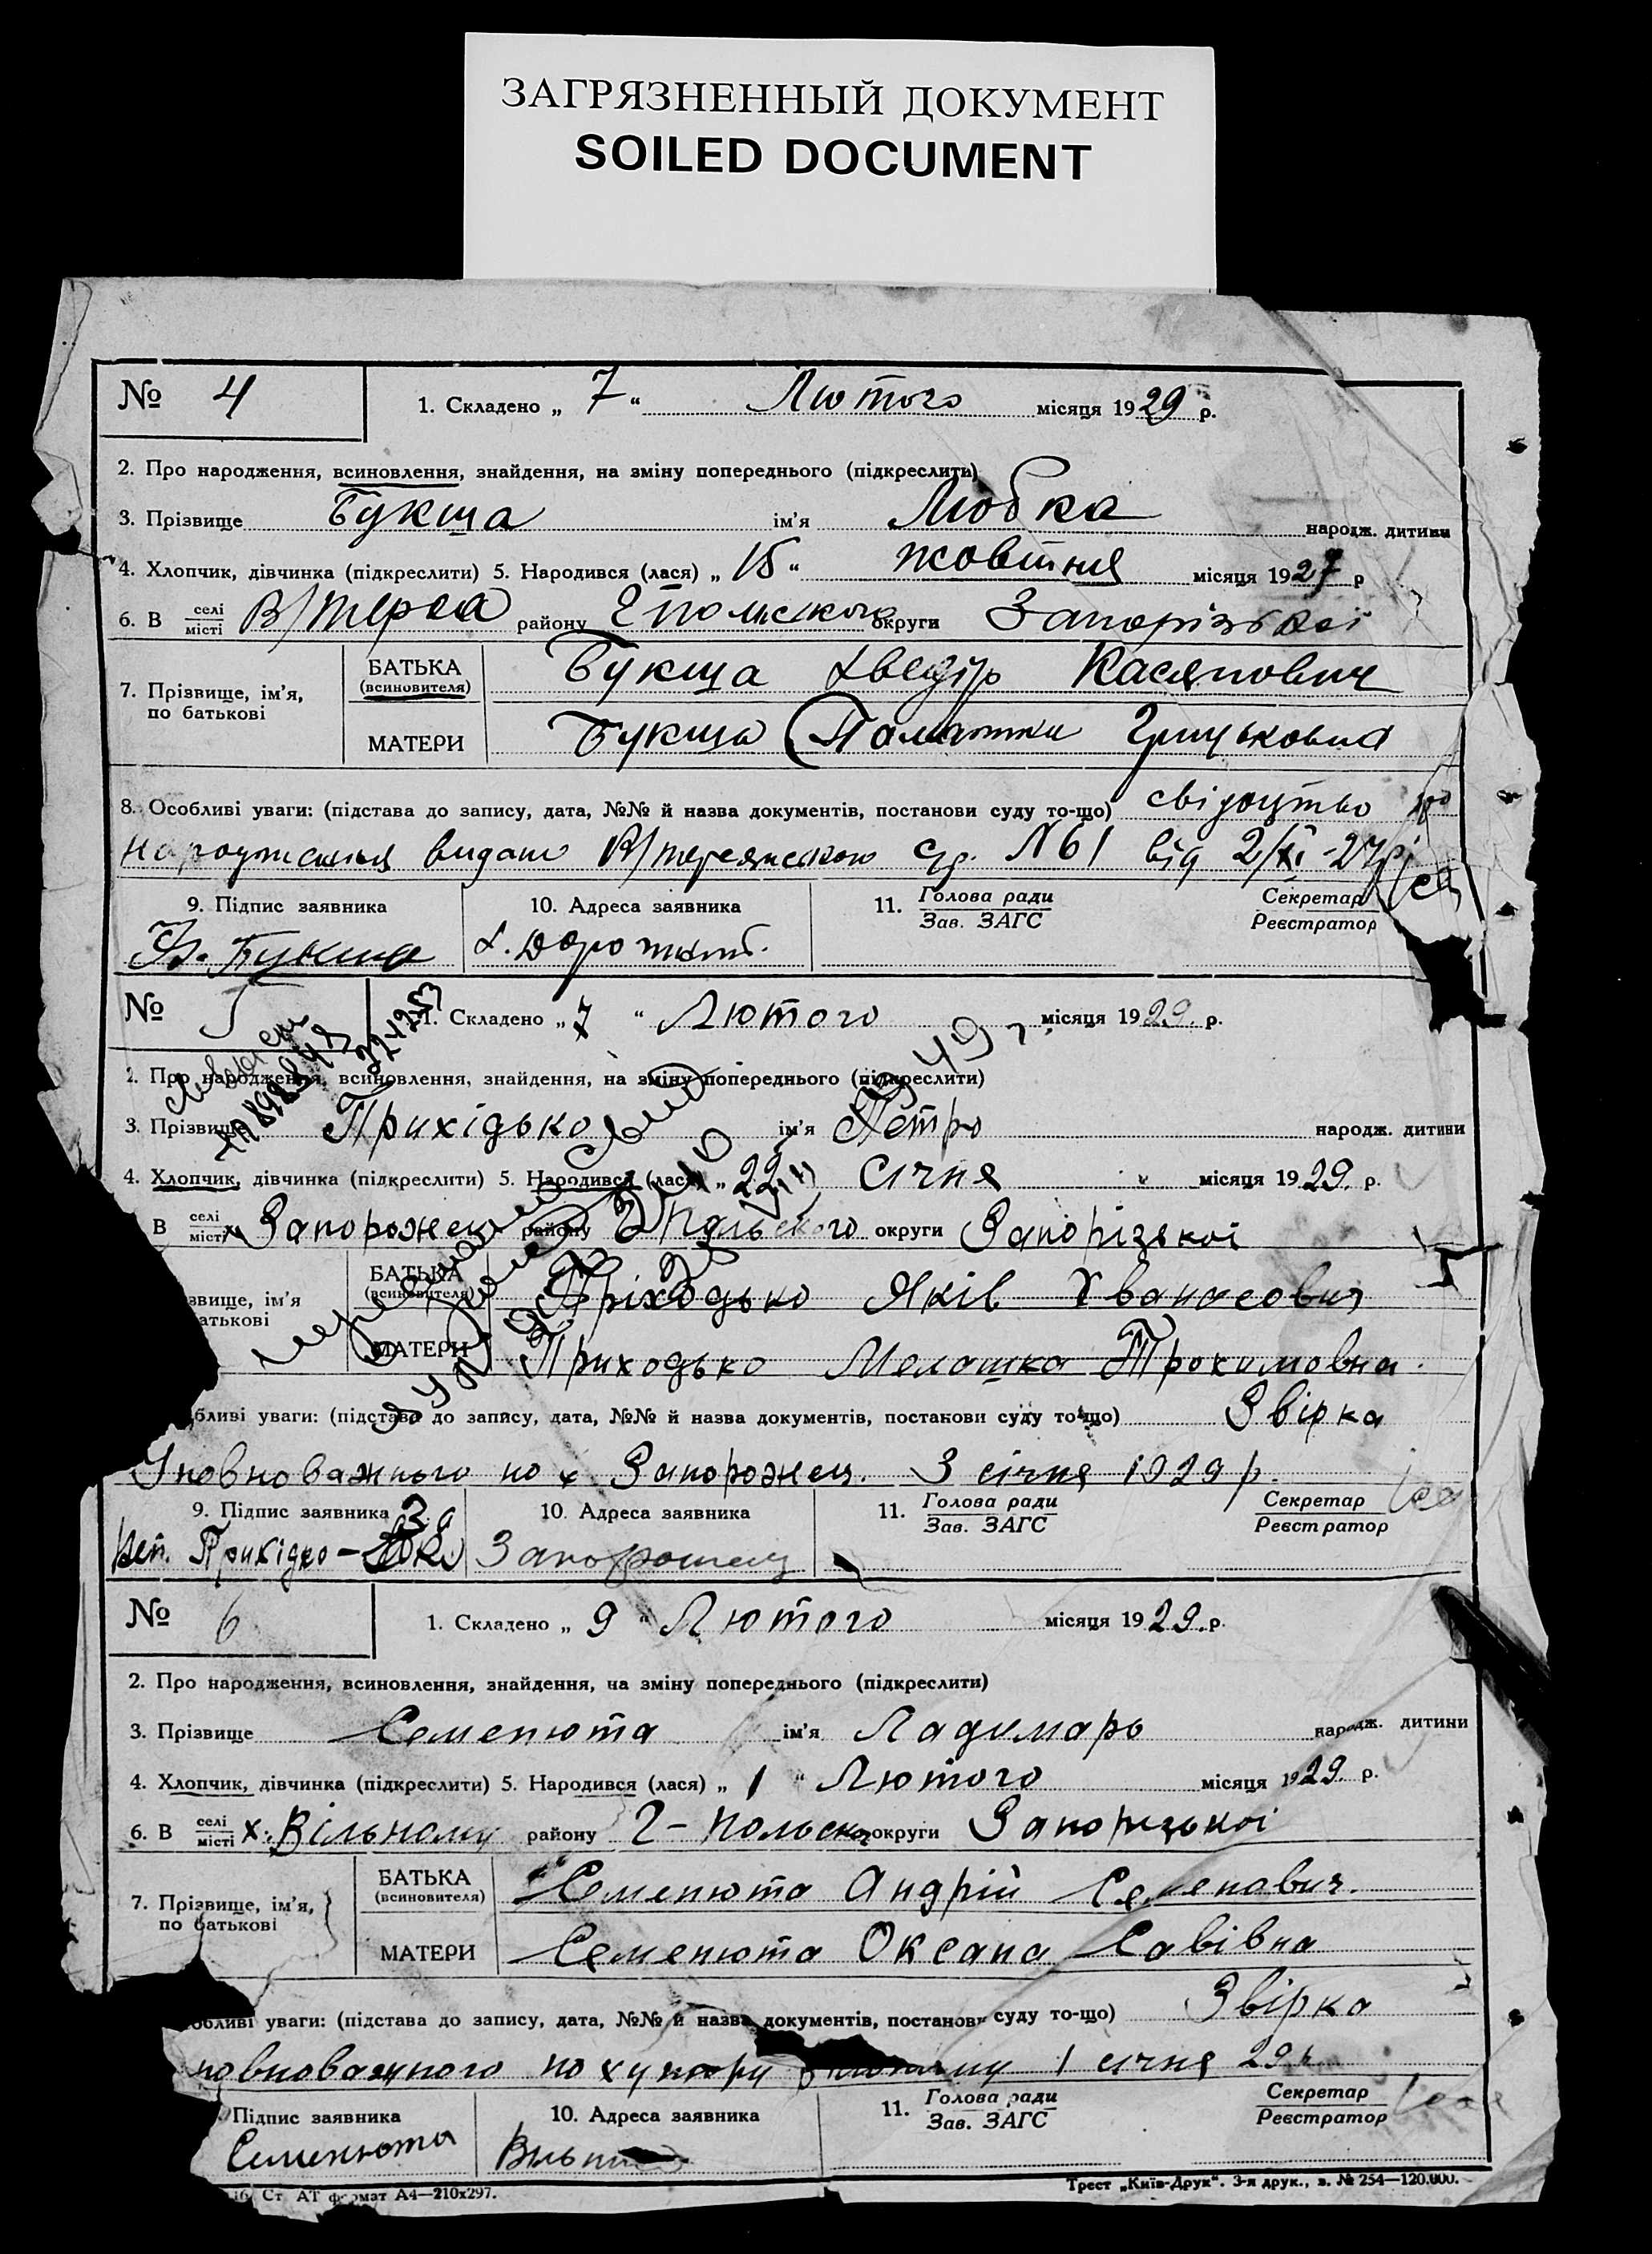 ЗАГРЯЗНЕННЫЙ ДОКУМЕНТ
SOILED DOCUMENT
№ 4 1. Складено „ 7 “ Лютого місяця 1929 р.
2. Про народження, всиновлення, знайдення, на зміну попереднього (підкреслити)
3. Прізвище Букша ім'я Любка народж. дитини
4. Хлопчик, дівчинка (підкреслити) 5. Народився (лася) „ 15 “ жовтня місяця 1927 р
6. В селі/місті В/терса району Гпольського округи Запорізької
7. Прізвище, ім'я, по батькові
БАТЬКА (всиновителя) Букша Хведір Касянович
МАТЕРИ Букша Грицьковна
8. Особливі уваги: (підстава до запису, дата, №№ й назва документів, постанови суду то-що) свідоцтво про
народження видано В/терсянською с/р. № 61 від 2/XI-27р
9. Підпис заявника 10. Адреса заявника 11. Голова ради/Зав. ЗАГС Секретар/Реєстратор
Букша
№ 5 1. Складено „ 7 “ Лютого місяця 1929. р.
2. Про народження, всиновлення, знайдення, на зміну попереднього (підкреслити)
3. Прізвище Прихідько ім'я Петро народж. дитини
4. Хлопчик, дівчинка (підкреслити) 5. Народився (лася) „ 22 “ січня місяця 1929. р.
В селі/місті х Запорожец району Гпольського округи Запорізької
звище, ім'я
атькові
БАТЬКА (всиновителя) Пріходько Яків Хванасович
МАТЕРИ Приходько Мелашка Трохимовна.
бливі уваги: (підстава до запису, дата, №№ й назва документів, постанови суду то-що) Звірка
Уповноважного по х Запорожец. 3 січня 1929 р.
9. Підпис заявника 10. Адреса заявника 11. Голова ради/Зав. ЗАГС Секретар/Реєстратор
Прихідко
№ 6 1. Складено „ 9 “ Лютого місяця 1929. р.
2. Про народження, всиновлення, знайдення, на зміну попереднього (підкреслити)
3. Прізвище Семенюта ім'я Ладимарь народж. дитини
4. Хлопчик, дівчинка (підкреслити) 5. Народився (лася) „ 1 “ Лютого місяця 1929. р.
6. В селі/місті х. Вільному району Г-польско округи Запорізької
7. Прізвище, ім'я, по батькові
БАТЬКА (всиновителя) Семенюта Андрій Семенович.
МАТЕРИ Семенюта Оксана Савівна
обливі уваги: (підстава до запису, дата, №№ й назва документів, постанови суду то-що) Звірка
повноважного по хутору 1 січня 29 р
Підпис заявника 10. Адреса заявника 11. Голова ради/Зав. ЗАГС Секретар/Реєстратор
Семенюта
Ст АТ формат А4—210х297. Трест „Київ-Друк“. 3-я друк., з. № 254—120.000.